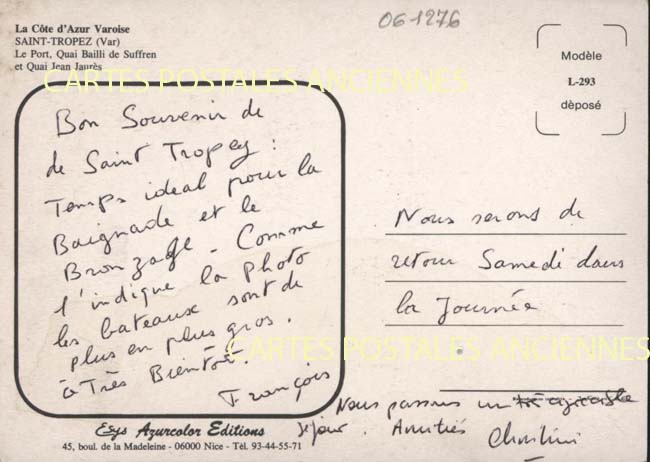 La Côte d'Azur Varoise
SAINT-TROPEZ (Var)
Le Port, Quai Bailli de Suffren
et Quai Jean Jaurès
06-1276
Modèle
L-293
dèposé
CARTES POSTALES ANCIENNES
Bon Souvenir de
de Saint Tropez :
Temps ideal pour la
Baignade et le
Bronzage - Comme
l'indique la Photo
les bateaux sont de
plus en plus gros.
à Très Bientôt.
François
Nous serons de
retour Samedi dans
la Journée
CARTES POSTALES ANCIENNES
Nous passons un très agréable
séjour. Amitiés Christine
Edys Azurcolor Editions
45, boul. de la Madeleine - 06000 Nice - Tél. 93-44-55-71